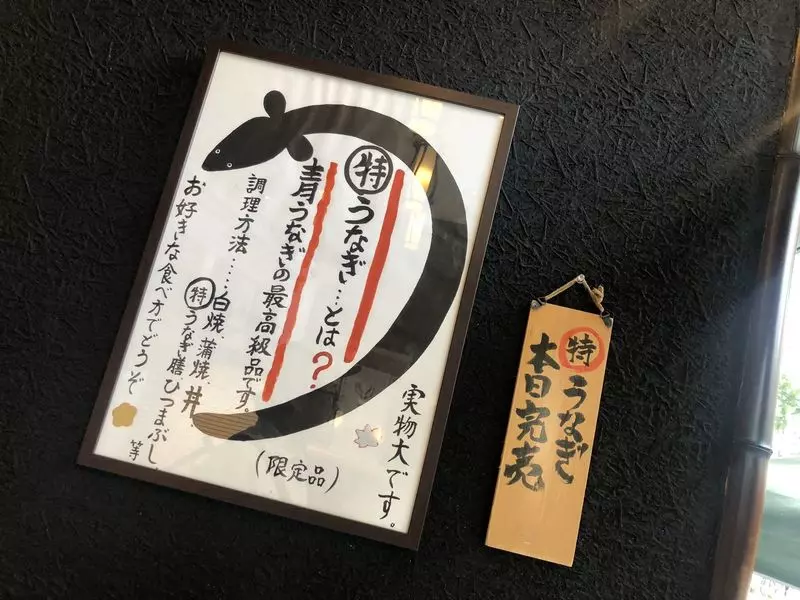 特うなぎ…とは?
青うなぎの最高級品です。
調理方法……白焼、蒲焼、丼、
特うなぎ膳ひつまぶし等
お好きな食べ方でどうぞ
実物大です。
(限定品)
特うなぎ
本日完売